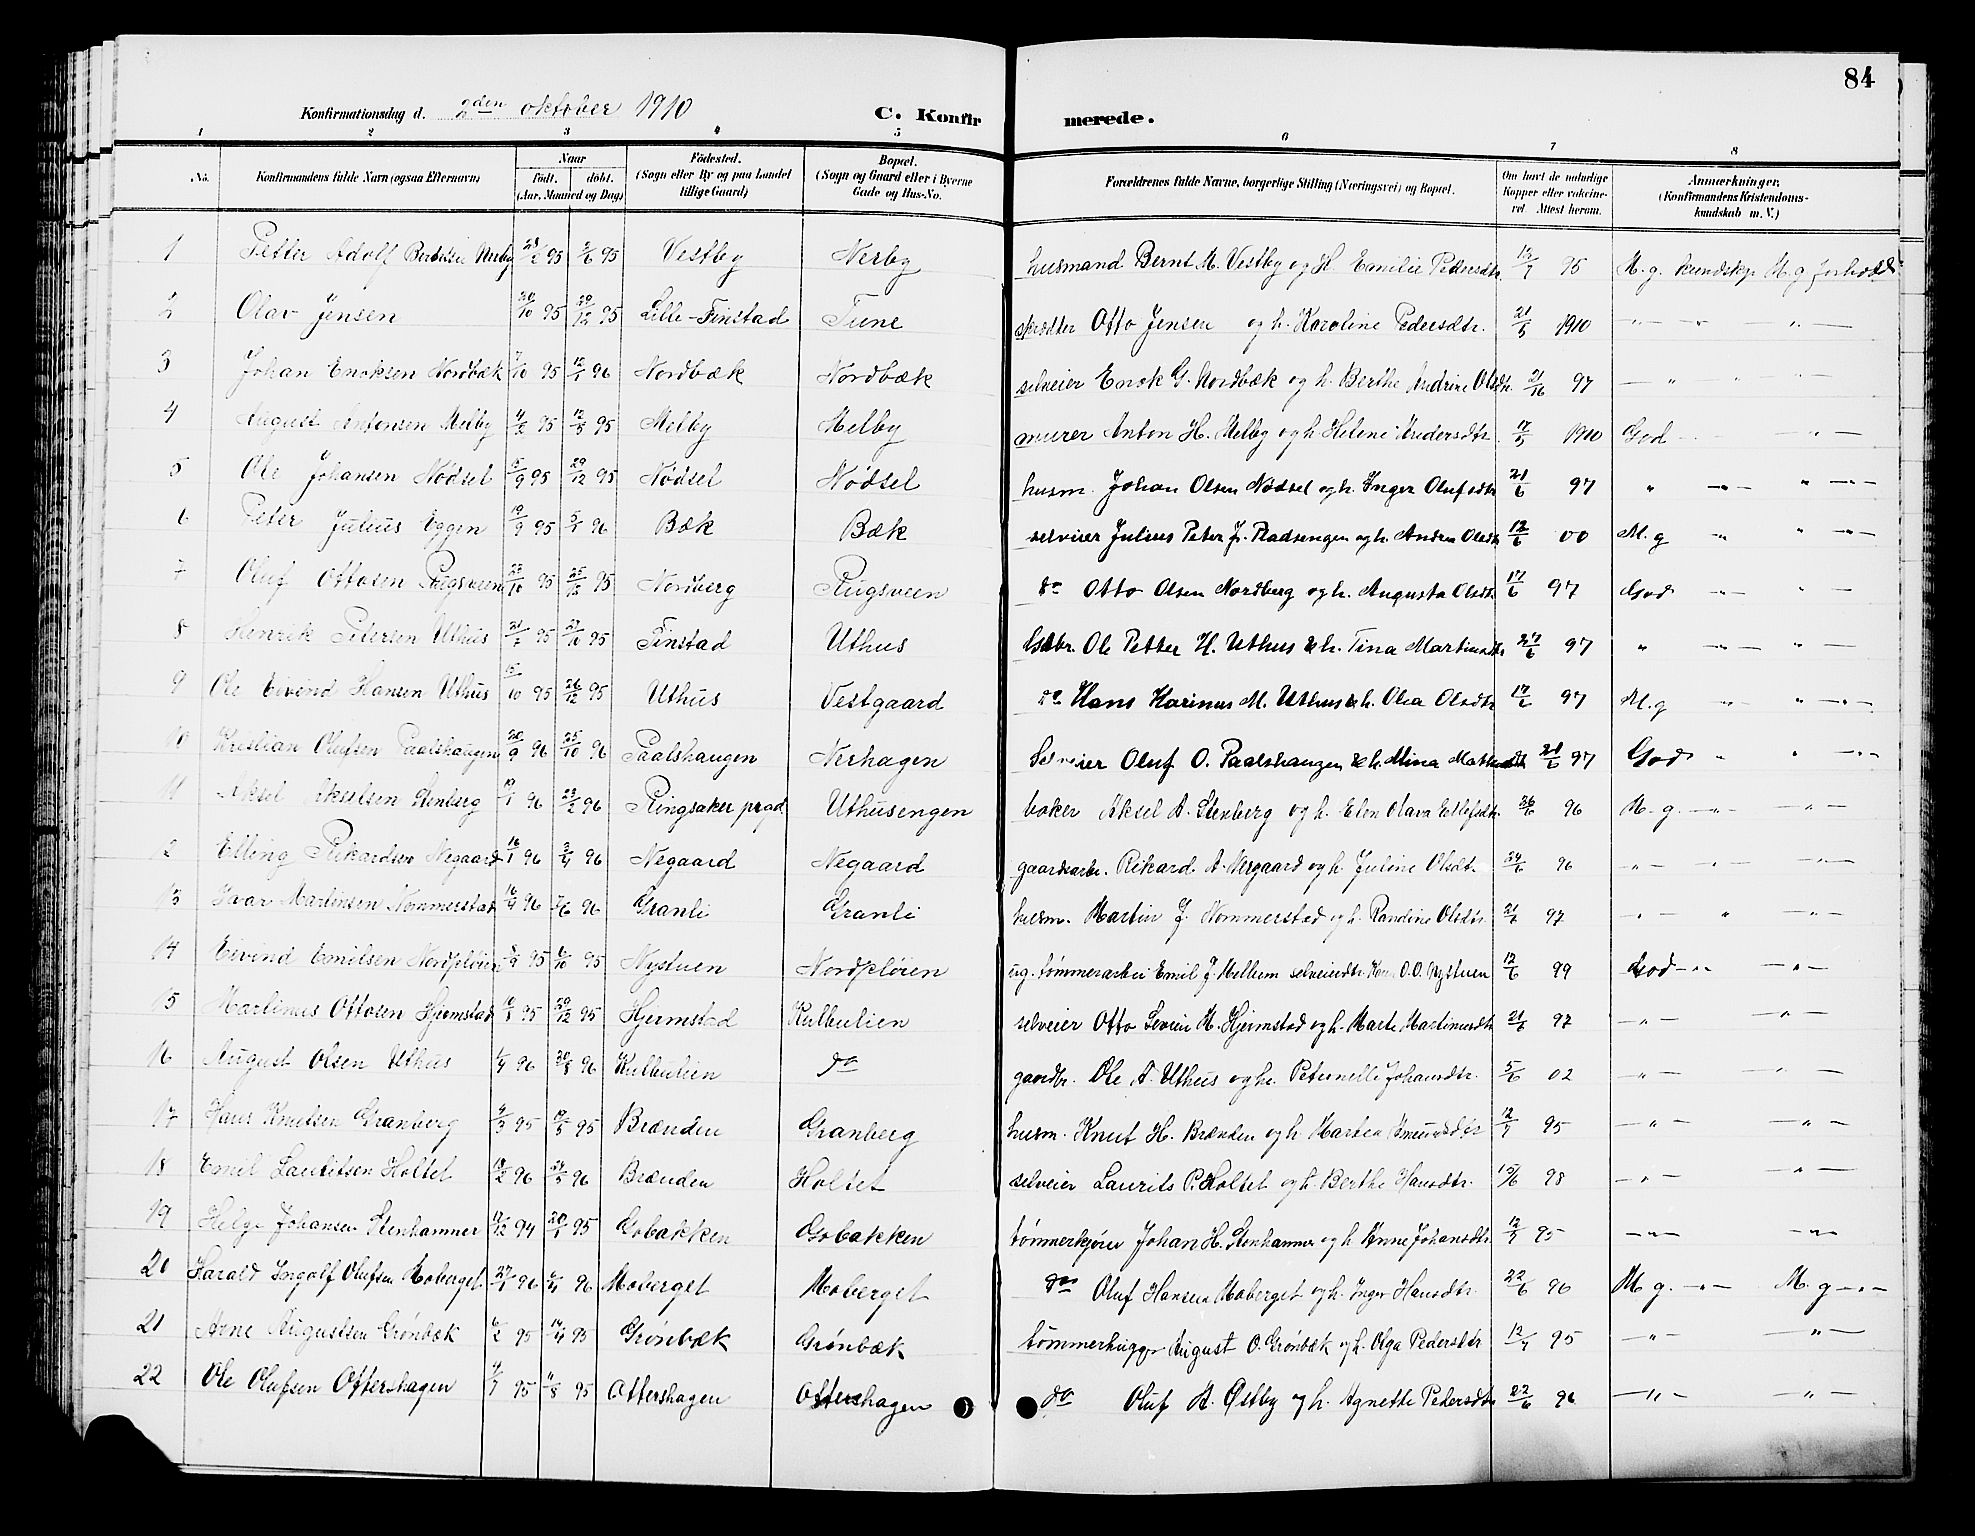 84
Konfirmationsdag d. 2den oktober 1910 C. Konfirmerede.
1 2 3 4 5 6 7 8
No. Konfirmandens fulde Navn (ogsaa Efternavn) Naar født. døbt. (Aar, Maaned og Dag) Födested. (Sogn eller By og paa Landet tillige Gaard) Bopæl. (Sogn og Gaard eller i Byerne Gade og Hus-No. Forældrenes fulde Navne, borgerlige Stilling (Næringsvei) og Bopæl. Om havt de naturlige Kopper eller vaccineret Attest herom. Anmærkninger. (Konfirmandens Kristendomskundskab m. V.)
1 Petter Adolf Nerby 95 2/6 95 Vestby Nerby husmand Bernt M. Vestby og H. Emilie Pedersdtr. 95 M.g. kundskp. M.g forhold
2 Olav Jensen 20/10 95 29/12 95 Lille-Finstad Tune skrædder Otto Jensen og h. Karoline Pedersdtr. 21/5 1910 " "
3 Johan Enoksen Nordbæk 7/10 95 12/1 96 Nordbæk Nordbæk selveier Enok G. Nordbæk og h. Berthe Andrine Olsdtr. 97 " "
4 August Antonsen Melby 4/2 95 12/5 95 Melby Melby murer Anton H. Melby og h Helene Andersdtr. 1910 God "
5 Ole Johansen Nødsel 15/9 95 29/12 95 Nødsel Nødsel husm. Johan Olsen Nødsel og h. Inger Olufsdtr 21/6 97 " "
6 Peter Julius Eggen 19/9 95 5/1 96 Bæk Bæk selveier Julius Peter J. og h. Andrea Olsdtr 12/6 00 M.g " "
7 Oluf Ottosen Rugsveen 23/10 95 25/12 95 Nordberg Rugsveen do Otto Olsen Nordberg og h. Augusta Olsdtr. 17/6 97 God " "
8 Henrik Petersen Uthus 21/7 95 27/10 95 Finstad Uthus Gdbr. Ole Petter H. Uthus & h. Tina Martinsdtr 27/6 97 " "
9 Ole Eivind Hansen Uthus 15/10 95 26/12 95 Uthus Vestgaard do Hans Karinus M. Uthus & h. Olea Olsdtr 17/6 97 M.g " "
10 Kristian Olufsen Paalshaugen 20/9 96 25/10 96 Paalshaugen Nerhagen Selveier Oluf O. Paalshaugen & h. Mina 21/6 97 God " "
11 Aksel Akselsen Stenberg 19/1 96 23/2 96 Ringsaker prgd. Uthusengen baker Aksel A. Stenberg og h. Elen Olava Ellefsdtr. 26/6 96 M.g. " "
12 Elling Rikardsen Negaard 16/1 96 3/4 96 Negaard Negaard gaardsarb. Rikard A. Nergaard og h. Juline Olsdt. 24/6 96 " "
13 Ivar Martinsen Nommerstad 16/4 96 7/6 96 Granli Granli husm. Martin J. Nommerstad og h. Randine Olsdtr. 21/6 97 " "
14 Eivind Emilsen Nordpløien 8/9 95 6/10 95 Nystuen Nordpløien ug. tømmerarbei Emil J. Mellum selveierdtr. O.O. Nystuen 12/6 99 God "
15 Martinus Ottosen Hjermstad 95 29/12 95 Hjermstad Kulbulien selveier Otto Severin H. Hjermstad og h. Marte Martinusdtr 21/6 97 " "
16 August Olsen Uthus 1/4 96 30/8 96 Kulbulien do gaardbr. Ole A. Uthus og h. Peternelle Johansdtr. 5/6 02 " "
17 Hans Knutsen Granberg 9/3 95 19/5 95 Brænden Granberg husm. Knut H. Brænden og h. Martea 12/7 95 " "
18 Emil Lauritsen Holtet 18/2 96 96 Brænden Holtet selveier Laurits P. Holtet og h. Berthe Hansdtr. 15/6 98 " "
19 Helge Johansen Stenhammer 17/12 94 20/1 95 Gobakken Gobakken tømmerkjører Johan H. Stenhammer og h. Anne Johansdtr. 12/7 95 " "
20 Harald Ingolf Olufsen Moberget 27/1 96 6/4 96 Moberget Moberget do Oluf Hansen Moberget og h. Inger Hansdtr. 22/6 96 M.g. " M.g "
21 Arne Augustsen Grønbæk 6/2 95 14/4 95 Grønbæk Grønbæk tømmerhugger August O. Grønbæk og h. Olga Pedersdtr 12/7 95 " "
22 Ole Olufsen Ottershagen 4/7 95 11/8 95 Ottershagen Ottershagen do Oluf A. Østby og h. Agnette Pedersdtr 22/6 96 " "